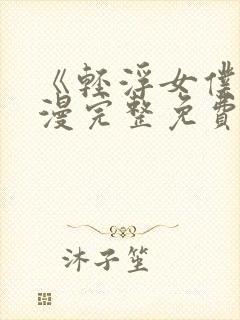 《輕浮女僕
漫完整免費
沐子笙